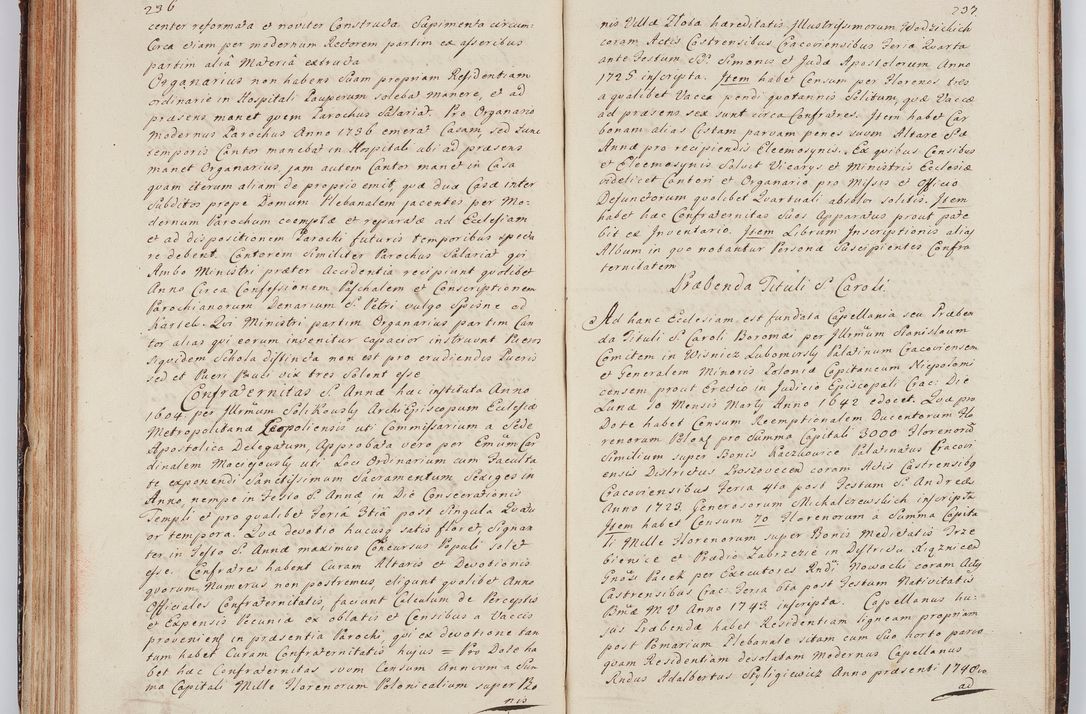 236
center reformata et noviter Constructa Sapimenta circum
Circa viam per modernum Rectorem partim ex asseribus
partim aliâ Materiâ extructa
Organarius non habens suam propriam Residentiam
ordinarie in Hospitali Pauperum solebat manere, et ad
præsens manet quem Parochus Salariat. Pro Organario
modernus Parochus Anno 1736 emerat Casam, sed tunc
temporis Cantor manebat in Hospitali ubi ad præsens
manet Organarius, jam autem Cantor manet in Casa
quam iterum aliam de proprio emit, quæ duæ Casæ inter
Subditos prope Domum Plebanalem jacentes per Mo-
dernum Parochum coemptæ et reparatæ ad Ecclesiam
et ad dispositionem Parochi futuris temporibus specta
re debent. Cantorem Similiter Parochus Salariat qui
Ambo Ministri præter Accidentia recipiunt quolibet
Anno Circa Confessionem Paschalem et Conscriptionem
Parochianorum Denarium S. Petri vulgo Spisne et
Kartek. Qui Ministri partim Organarius partim Can
tor alias qui eorum invenitur capacior instruunt Pueros
siquidem Schola distincta non est pro erudiendis Pueris
sed et Pueri Pauci vix tres Solent esse
Confraternitas S. Annæ hac instituta Anno
1604 per Illrmum Solikowsky Archi Episcopum Ecclesiæ
Metropolitanæ Leopoliensis uti Commissarium a Sede
Apostolica Delegatum, Approbata vero per Emum Car
dinalem Macieyowsky uti Loci Ordinarium cum faculta
te exponendi Sanctissimum Sacramentum Sexiges in
Anno, nempe in Festo S. Annæ in Die Consecrationis
Templi et pro qualibet Feria 3tiâ post Singula Quatu
or tempora. Quæ devotio hucusq satis floret, Signan
ter in Festo S. Annæ maximus Concursus Populi solet
esse. Confratres habent Curam Altaris et Devotionis
quorum Numerus non postremus eligunt quolibet Anno
Officiales Confraternitatis, faciunt Calculum de Perceptis
et Expensis Pecunia ex oblatis et Censibus a Vaccis
provenien in præsentia Parochi, qui ex devotione tan
tum habet Curam Confraternitatis hujus = Pro Dote ha
bet hæc Confraternitas suum Censum Annuum a Sum
ma Capitali Mille Florenorum Polonicalium super Bo
nis
237
nis Villæ Zloba hæreditatis Illustrissimorum Wodzickich
coram Actis Castrensibus Cracoviensibus Feria Quarta
ante Festum SS. Simonis et Judæ Apostolorum Anno
1725 inscripta. Item habet Censum per Florenos tres
a qualibet Vacca pendi quotannis Solitum, quæ Vaccæ
ad præsens sex sunt circa Confratres. Item habet Car
bonam alias Cistam parvam penes suum Altare S
Annæ pro recipiendis Eleemosynis. Ex quibus Censibus
et Eleemosynis Solvit Vicarys et Ministris Ecclesiæ
videlicet Cantori et Organario pro Missis et Officio
Defunctorum qualibet Quartuali absolvi solitis. Item
habet hæc Confraternitas Suos Apparatus prout pate
bit ex Inventario. Item Librum Inscriptionis alias
Album in quo notantur Personæ Suscipientes Confra
ternitatem
Præbenda Tituli S. Caroli.
Ad hanc Ecclesiam est fundata Capellania seu Præben
da Tituli S. Caroli Boromæ per Illrmum Stanislaum
Comitem in Wisnicz Lubomirsky Palatinum Cracoviensem
et Generalem Minoris Poloniæ Capitaneum Niepolomi
censem prout Erectio in Judicio Episcopali Crac. Die
Lunæ 10 Mensis Marty Anno 1642 edocet. Quæ pro
Dote habet Censum Reemptionalem Ducentorum Flo
renorum Polon pro Summa Capitali 3000 Florenorum
Similium super Bonis Raczkowice Palatinatus Cracovi
ensis Districtus Proszovecen coram Actis Castrensibq
Cracoviensibus Feria 4ta post Festum S. Andreæ
Anno 1723 Generosorum Michalczewskich inscripta
Item habet Censum 70 Florenorum à Summa Capita
li Mille Florenorum super Bonis Medietatis Trze
bienice et Prædio Zabrzezie in Districtu Xiązniceń
Gnosi Pacek per Executores Rndi Nowacki coram Actis
Castrensibus Crac. Feria 6ta post Festum Nativitatis
Bmæ M V Anno 1743 inscripta. Capellanus hu-
jus Præbendæ habet Residentiam ligneam propriam
post Pomarium Plebanale sitam cum Suo horto parvo
quam Residentiam desolatam Modernus Capellanus
Rndus Adalbertus Styligiewicz Anno præsenti 1748vo
ad